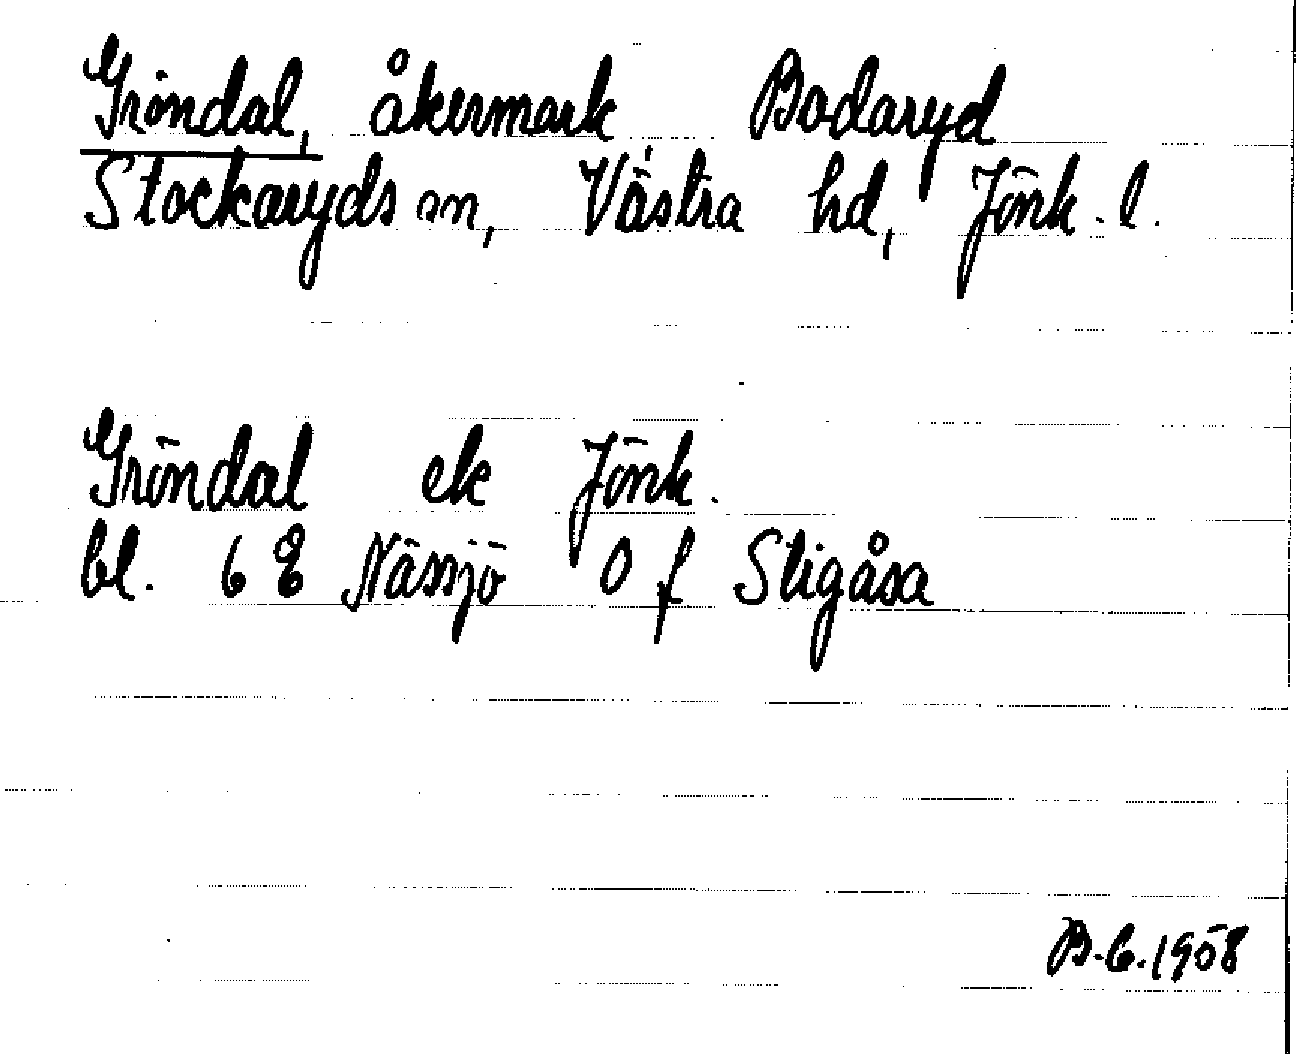 Gröndal, åkermark Bodaryd
Stockaryds sn, Västra hd, Jönk. l.
Gröndal ek Jönk.
bl. 6 E Nässjö 0 f Stigåsa
B.C. 1958